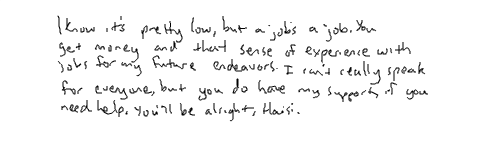 I know it's pretty low, but a job's a job. You
get money and that sense of experience with
jobs for my future endeavors. I can't really speak
for everyone, but you do have my support, if you
need help. You'll be alright, Haisi.